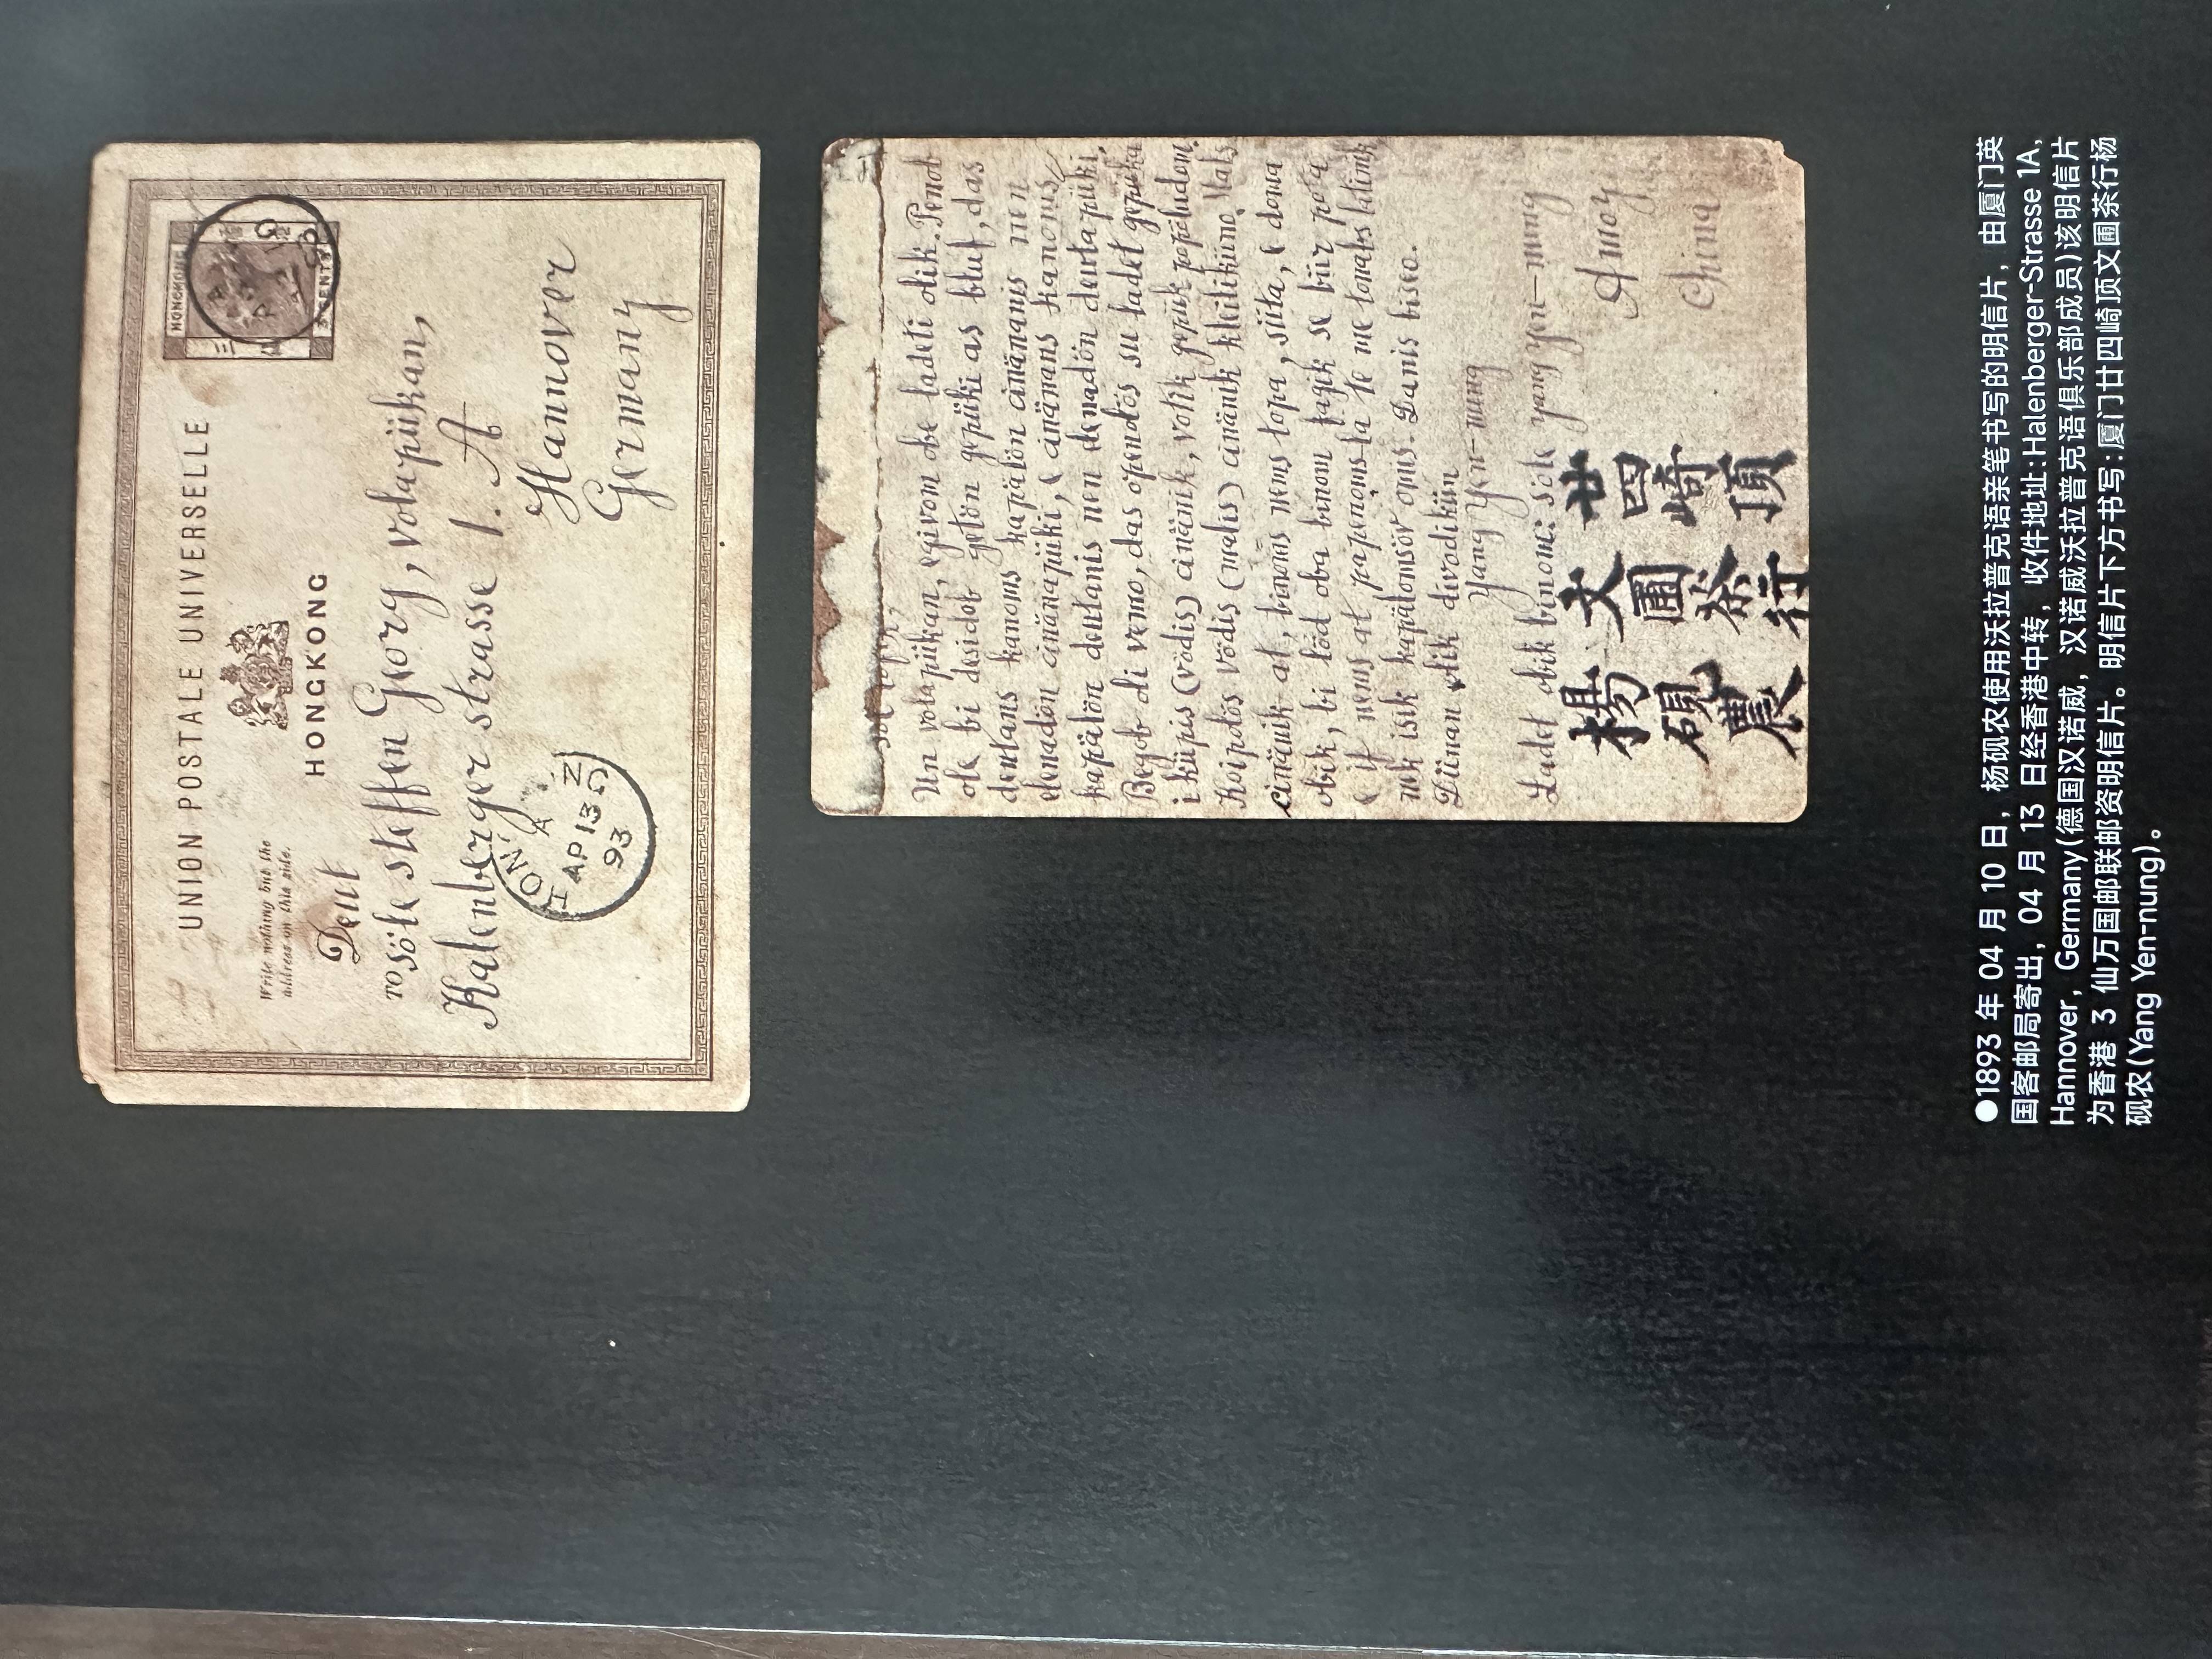 UNION POSTALE UNIVERSELLE
HONGKONG
Write nothing but the
address on this side.
HONGKONG
3 CENTS
Deut
söle steffen Georg, volapükan,
Kalenbergerstrasse 1. A
Hannover
Germany
AP 13
93
Un volapükan, egivom obe ladeti olik. Penob
ole bi desidob getön gepüki as bluf, das
deutans kanoms kapälön cinänanis nen
denadön cinänapüki, e cinänans kanoms
kapälön deutanis nen denadön deutapüki.
Begob oli vemo, das openolös su ladet gepüka
i küpis (vödis) cinänik, votik gepük popöludom.
Koipolös vödis (malis) cinänik kleilikiino. Mals
cinänik at, binoms nems topa, süta, e doma
obik, bi löd oba binom fagik se bür pota
(if nems at papenoms la te me tonabs latinik
nek isik kapälomsöv omis. Danis biseo.
Dünan olik divodikün
Yang Yen-nung
Ladet obik binom: söle Yang Yen-nung
Amoy
China
廿四崎頂
文圃茶行
楊硯農
●1893 年 04 月 10 日，杨砚农使用沃拉普克语亲笔书写的明信片，由厦门英
国客邮局寄出，04 月 13 日经香港中转，收件地址:Halenberger-Strasse 1A,
Hannover，Germany(德国汉诺威，汉诺威沃拉普克语俱乐部成员)该明信片
为香港 3 仙万国邮联邮资明信片。明信片下方书写:厦门廿四崎顶文圃茶行杨
砚农(Yang Yen-nung)。